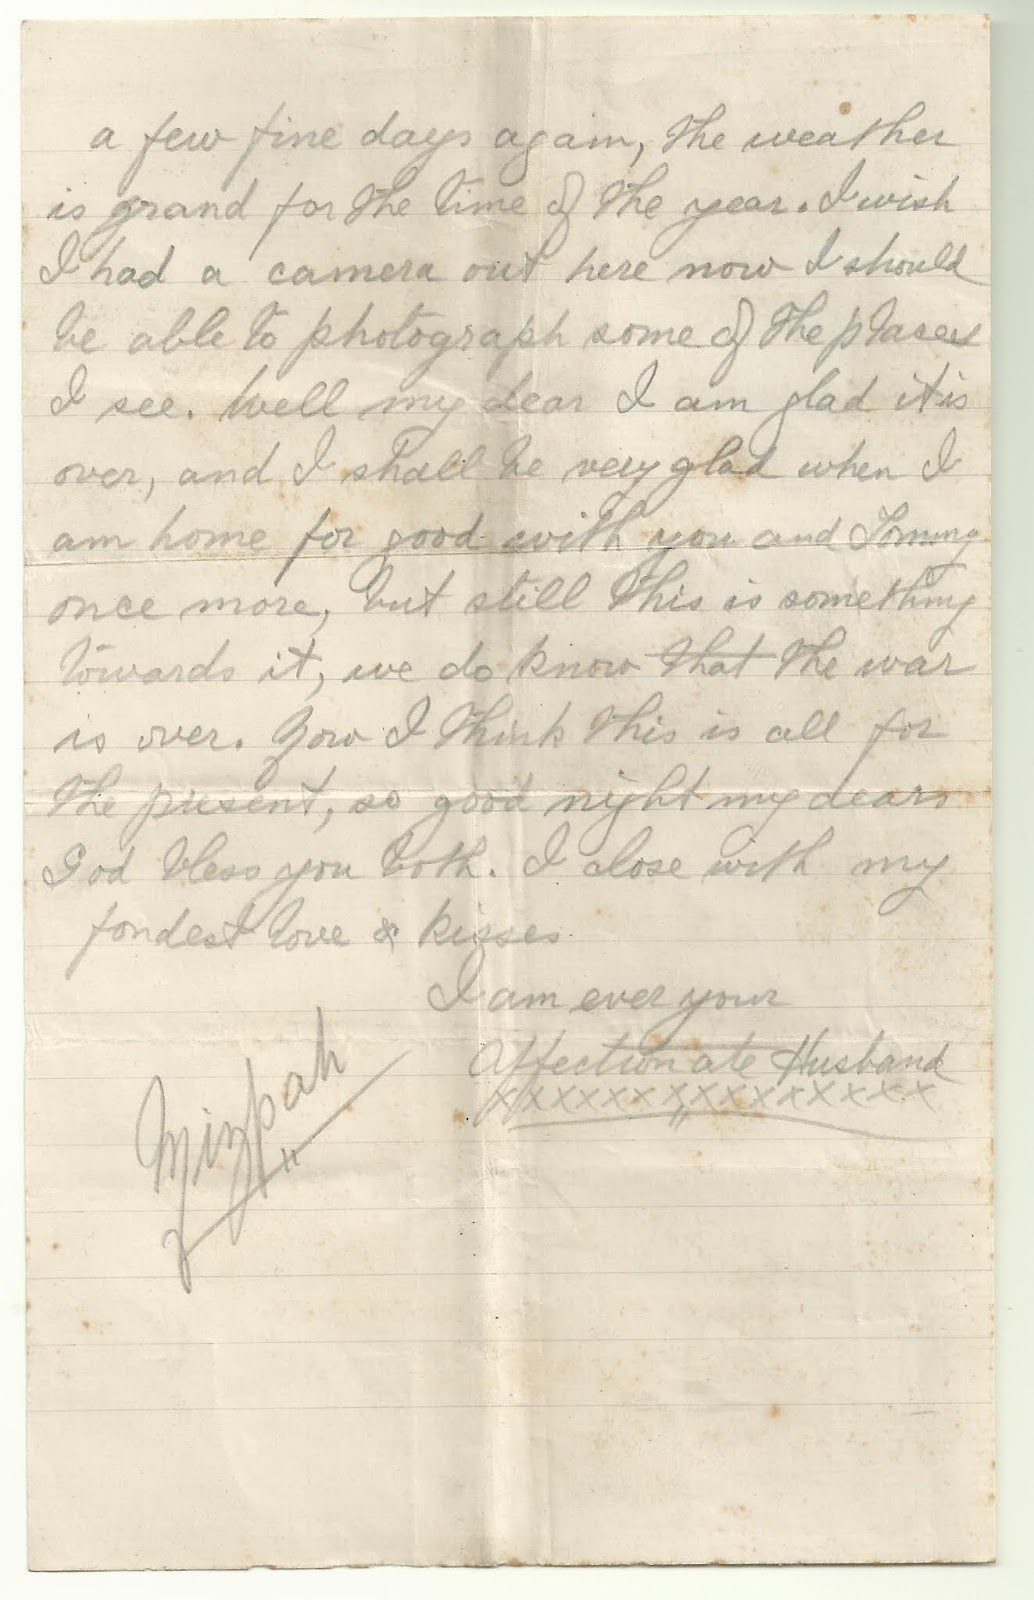 a few fine days again, the weather
is grand for the time of the year. I wish
I had a camera out here now I should
be able to photograph some of the places
I see. Well my dear I am glad it is
over, and I shall be very glad when I
am home for good with you and Tommy
once more, but still this is something
towards it, we do know that the war
is over. Now I think this is all for
the present, so good night my dears
God bless you both. I close with my
fondest love & kisses
I am ever your
Affectionate Husband
xxxxxxxxxxxxxxxx
Mizpah